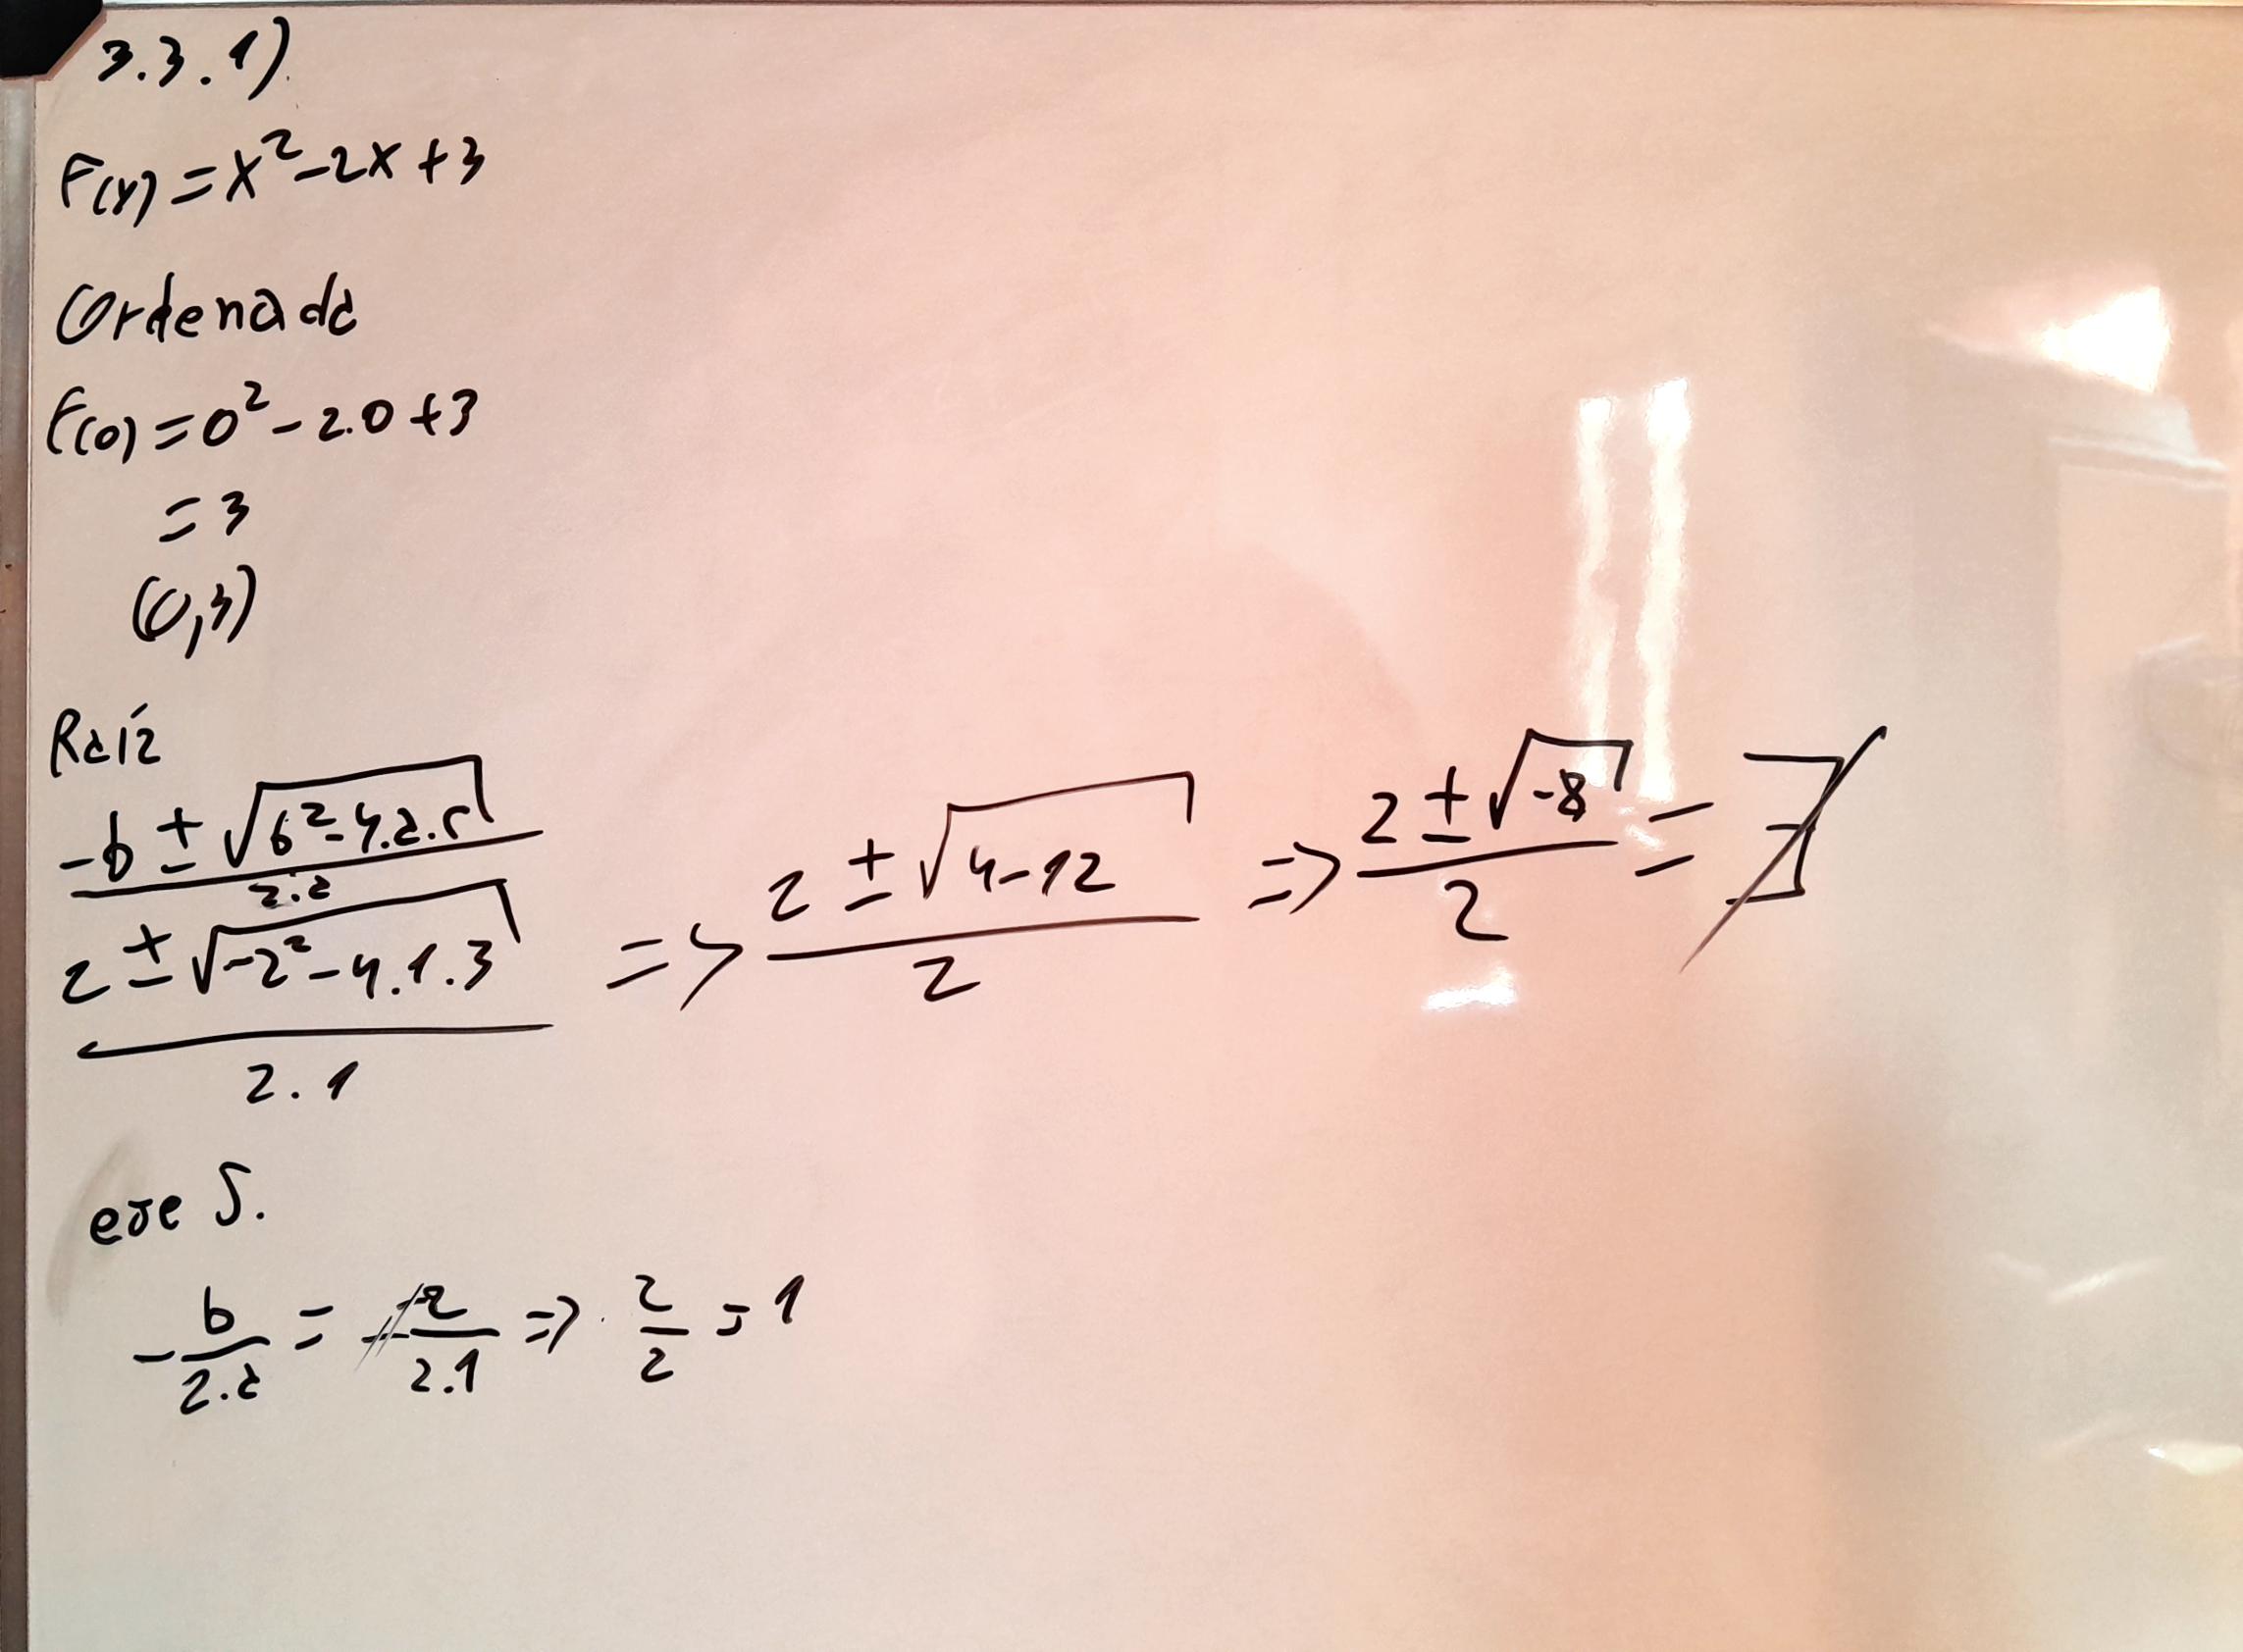 3.3.1)
F(x) = x² - 2x + 3
Ordenada
F(0) = 0² - 2.0 + 3
= 3
(0,3)
Raíz
-b ± √b² - 4.a.c / 2.a
2 ± √-2² - 4.1.3 / 2.1 => 2 ± √4 - 12 / 2 => 2 ± √-8 / 2 = ∄
eje S.
- b / 2.a = - -2 / 2.1 => 2 / 2 = 1